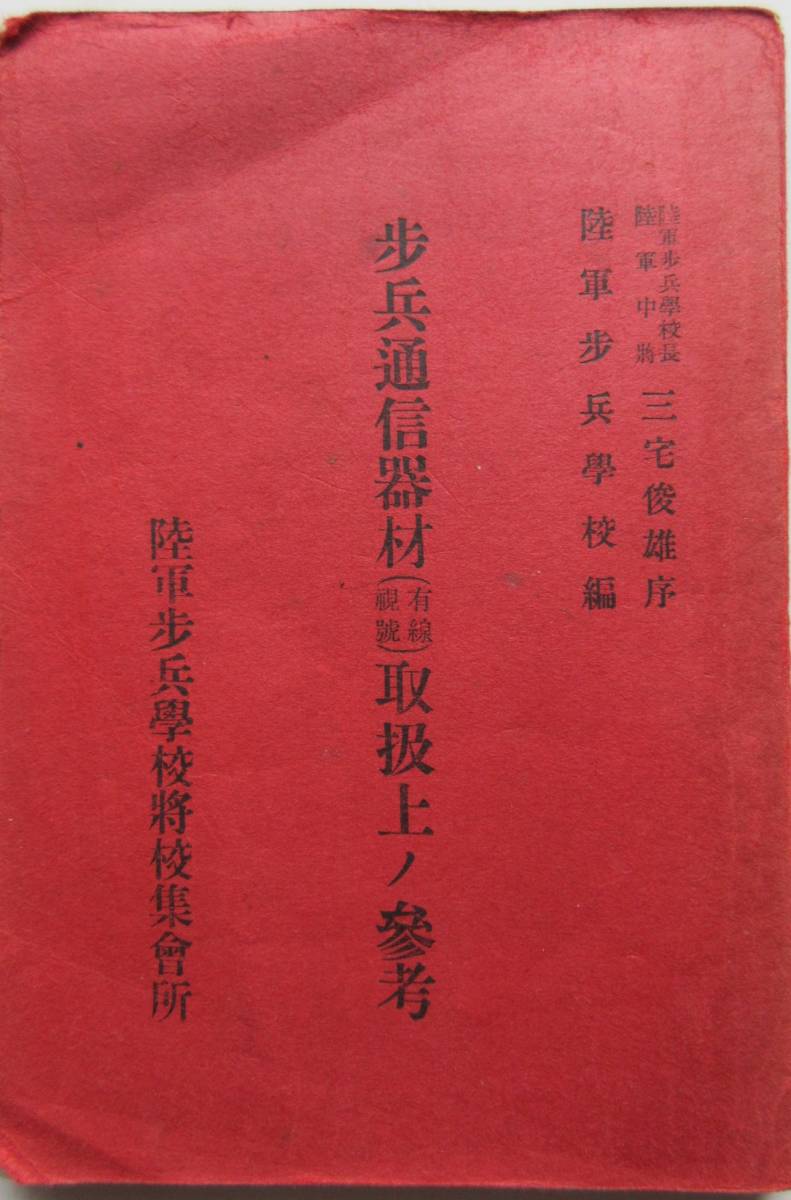 陸軍步兵學校長
陸軍中將
三宅俊雄序
陸軍步兵學校編
步兵通信器材(有線視號)取扱上ノ參考
陸軍步兵學校將校集會所